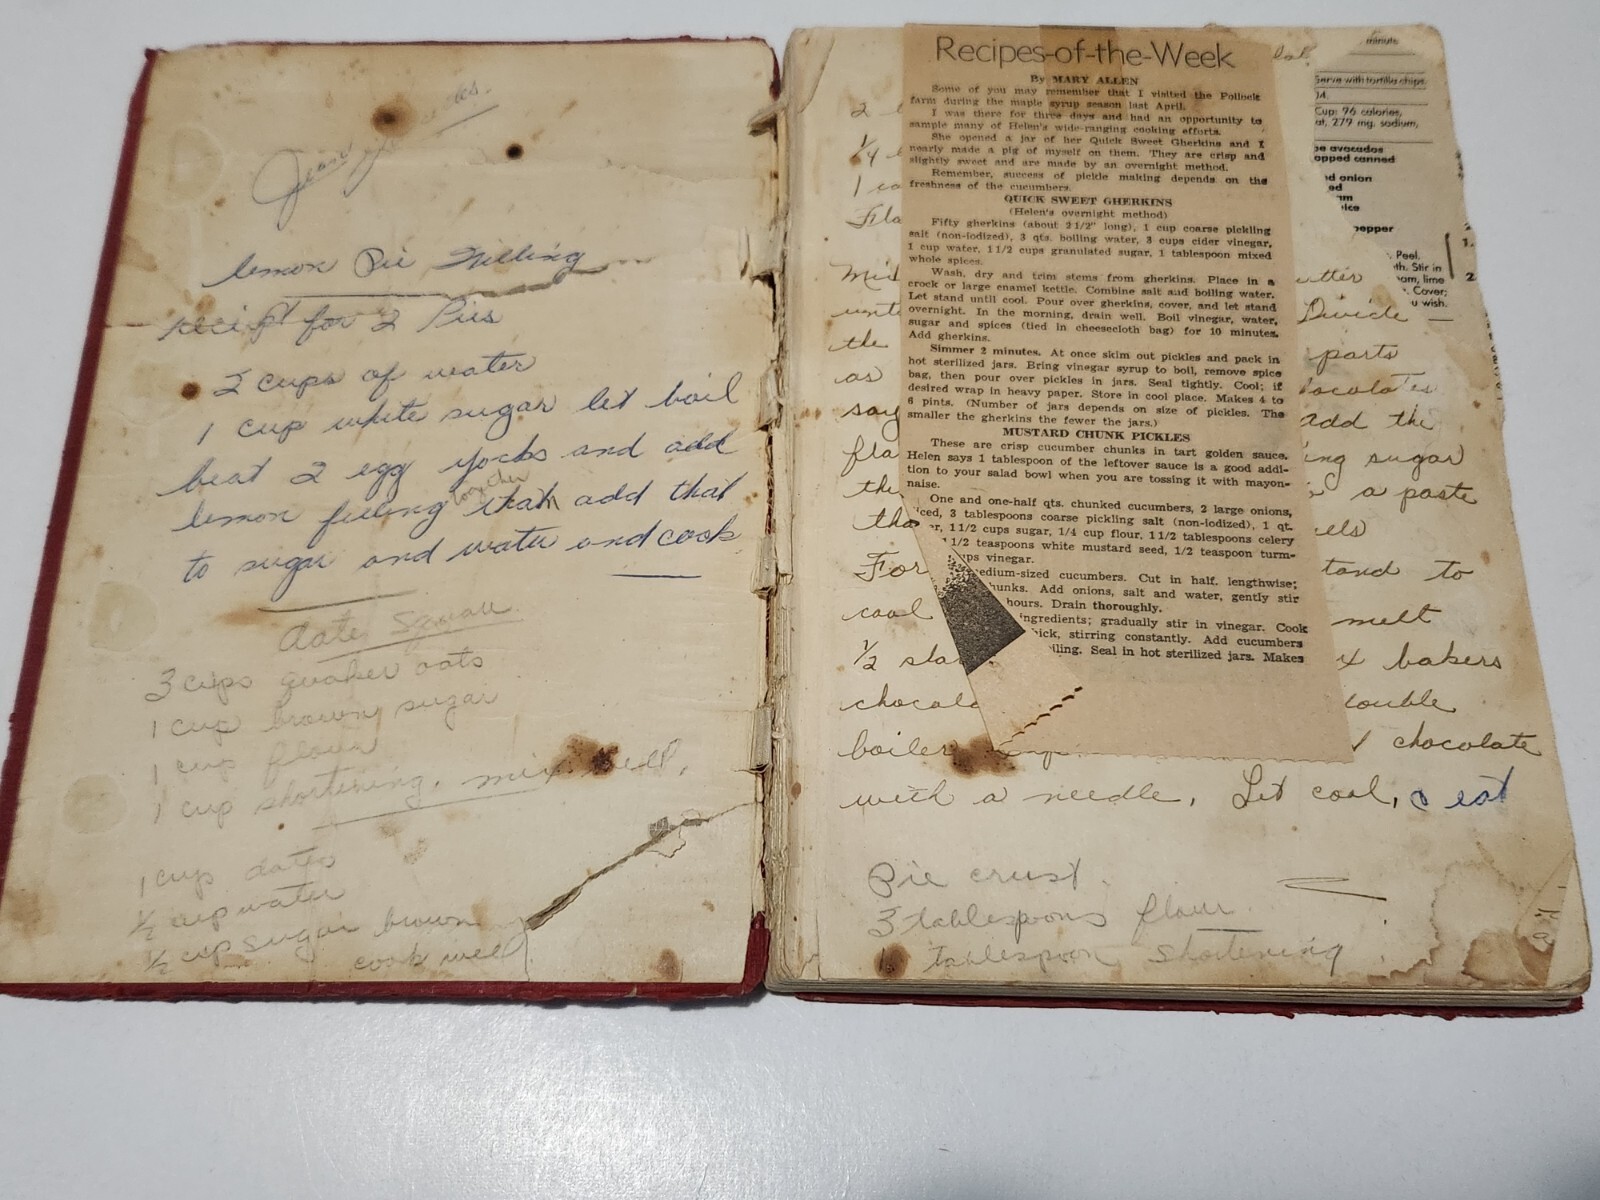 lemon Pie Filling
recipt for 2 Pies
2 cups of water
1 cup white sugar let boil
beat 2 egg yocks and add
lemon filling together add that
to sugar and water and cook
date Square
3 cups quaker oats
1 cup brown sugar
1 cup flour
1 cup shortening. mix well.
1 cup dates
1/2 cup water
1/2 cup sugar brown
cook well
Recipes-of-the-Week
By MARY ALLEN
Some of you may remember that I visited the Pollock
farm during the maple syrup season last April.
I was there for three days and had an opportunity to
sample many of Helen's wide-ranging cooking efforts.
She opened a jar of her Quick Sweet Gherkins and I
nearly made a pig of myself on them. They are crisp and
slightly sweet and are made by an overnight method.
Remember, success of pickle making depends on the
freshness of the cucumbers.
QUICK SWEET GHERKINS
(Helen's overnight method)
Fifty gherkins (about 2 1/2" long), 1 cup coarse pickling
salt (non-iodized), 3 qts. boiling water, 3 cups cider vinegar,
1 cup water, 1 1/2 cups granulated sugar, 1 tablespoon mixed
whole spices.
Wash, dry and trim stems from gherkins. Place in a
crock or large enamel kettle. Combine salt and boiling water.
Let stand until cool. Pour over gherkins, cover, and let stand
overnight. In the morning, drain well. Boil vinegar, water,
sugar and spices (tied in cheesecloth bag) for 10 minutes.
Add gherkins.
Simmer 2 minutes. At once skim out pickles and pack in
hot sterilized jars. Bring vinegar syrup to boil, remove spice
bag, then pour over pickles in jars. Seal tightly. Cool; if
desired wrap in heavy paper. Store in cool place. Makes 4 to
6 pints. (Number of jars depends on size of pickles. The
smaller the gherkins the fewer the jars.)
MUSTARD CHUNK PICKLES
These are crisp cucumber chunks in tart golden sauce.
Helen says 1 tablespoon of the leftover sauce is a good addi-
tion to your salad bowl when you are tossing it with mayon-
naise.
One and one-half qts. chunked cucumbers, 2 large onions,
iced, 3 tablespoons coarse pickling salt (non-iodized), 1 qt.
er, 1 1/2 cups sugar, 1/4 cup flour, 1 1/2 tablespoons celery
1 1/2 teaspoons white mustard seed, 1/2 teaspoon turm-
ups vinegar.
edium-sized cucumbers. Cut in half, lengthwise;
hunks. Add onions, salt and water, gently stir
hours. Drain thoroughly.
ingredients; gradually stir in vinegar. Cook
hick, stirring constantly. Add cucumbers
iling. Seal in hot sterilized jars. Makes
minute
Serve with tortilla chips.
Cup: 96 calories,
at, 279 mg. sodium,
pe avocados
opped canned
nd onion
ed
am
uice
pepper
Peel.
th. Stir in
am, lime
Cover;
u wish.
Divide
the parts
as
add the
ing sugar
the a paste
For stand to
cool melt
1/2 bakers
double
boiler chocolate
with a needle. Let cool, & eat
Pie crust.
3 tablespoons flour.
1 tablespoon shortening